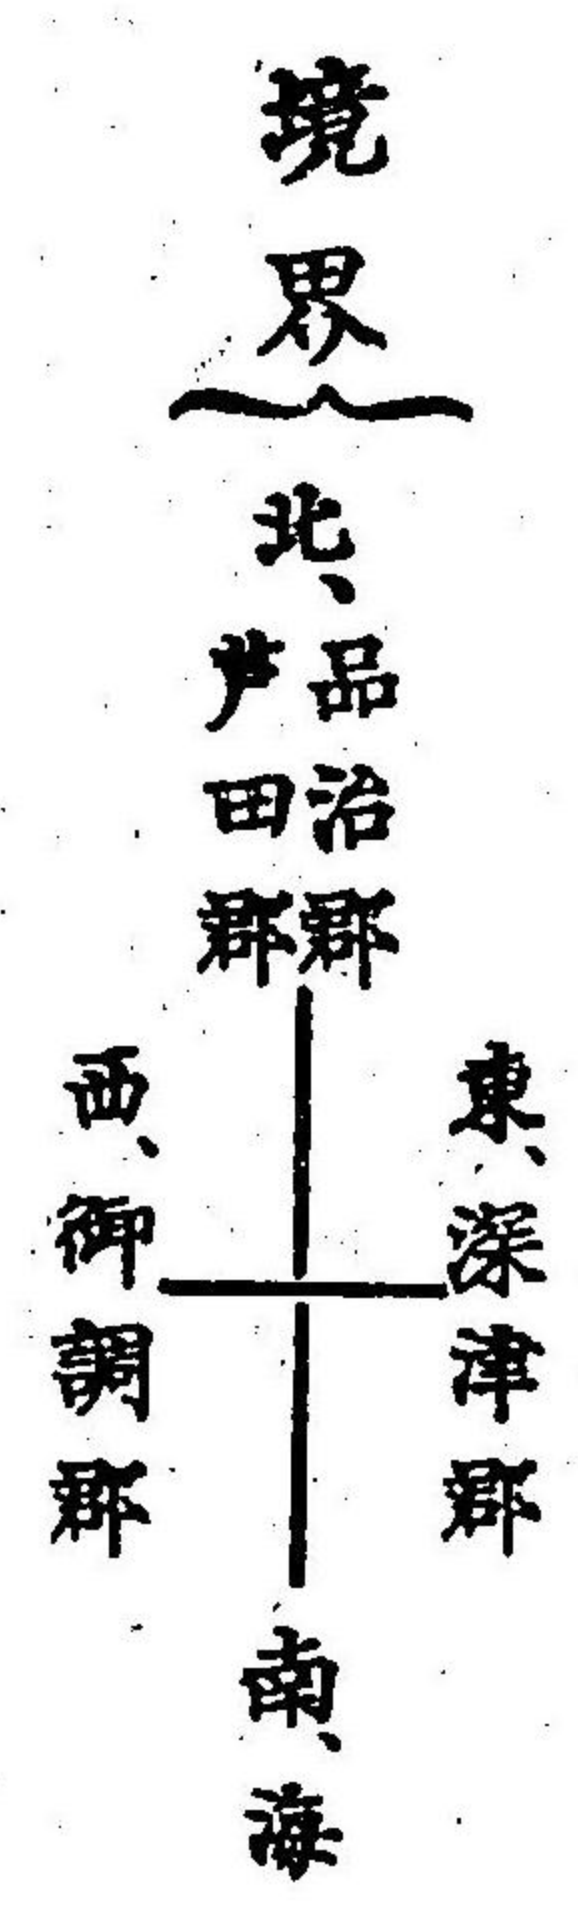 境界
北、
品治郡
芦田郡
東、深津郡
西、御調郡
南、海